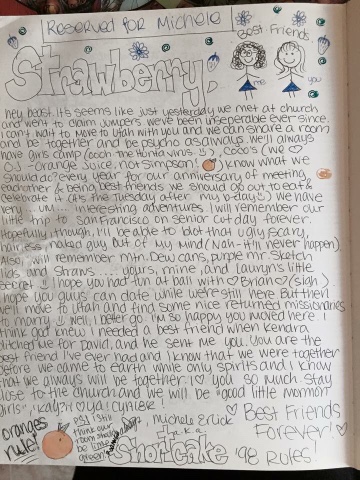 Reserved for Michele
Best Friends
Strawberry,
me
you
hey beast. It's seems like just yesterday we met at church
and went to claim jumpers we've been inseperable ever since.
I can't wait to move to Utah with you and we can share a room
and be together and be psycho as always. we'll always
have girls camp (ooh-the hunta virus!:)), Coco's (we ♡
OJ - orange Juice, not Simpson) I know what we
should do? every year for our anniversary of meeting
eachother & being best friends we should go out to eat &
celebrate it (it's the Tuesday after my b-day!) We have
very ... um... interesting adventures. I will remember our
little trip to San Francisco on senior cut day forever.
Hopefully though, I'll be able to blot that ugly, scary,
hairless naked guy out of my mind (Nah-it'll never happen).
Also I will remember mtn. Dew cans, purple mr. Sketch
lids and straws ..... yours, mine, and Lauryn's little
secret :) I hope you had fun at ball with ♡Brian♡ (sigh).
I hope you guys can date while we're still here but then
we'll move to Utah and find some nice returned missionaries
to marry :) well, I better go. I'm so happy you moved here. I
think God knew I needed a best friend when Kendra
ditched me for David, and he sent me you. You are the
best friend I've ever had and I know that we were together
before we came to earth while only spirits and I know
that we always will be together. I ♡ you so much stay
close to the church and we will be "good little mormon
girls", 'kay?! ♡ ya! Cynier!
oranges
rule!
PS I still
think our
room should
be lime
green!
Michele
a.k.a.
Shortcake
♡ Best Friends
Forever! ♡
'98 Rules!